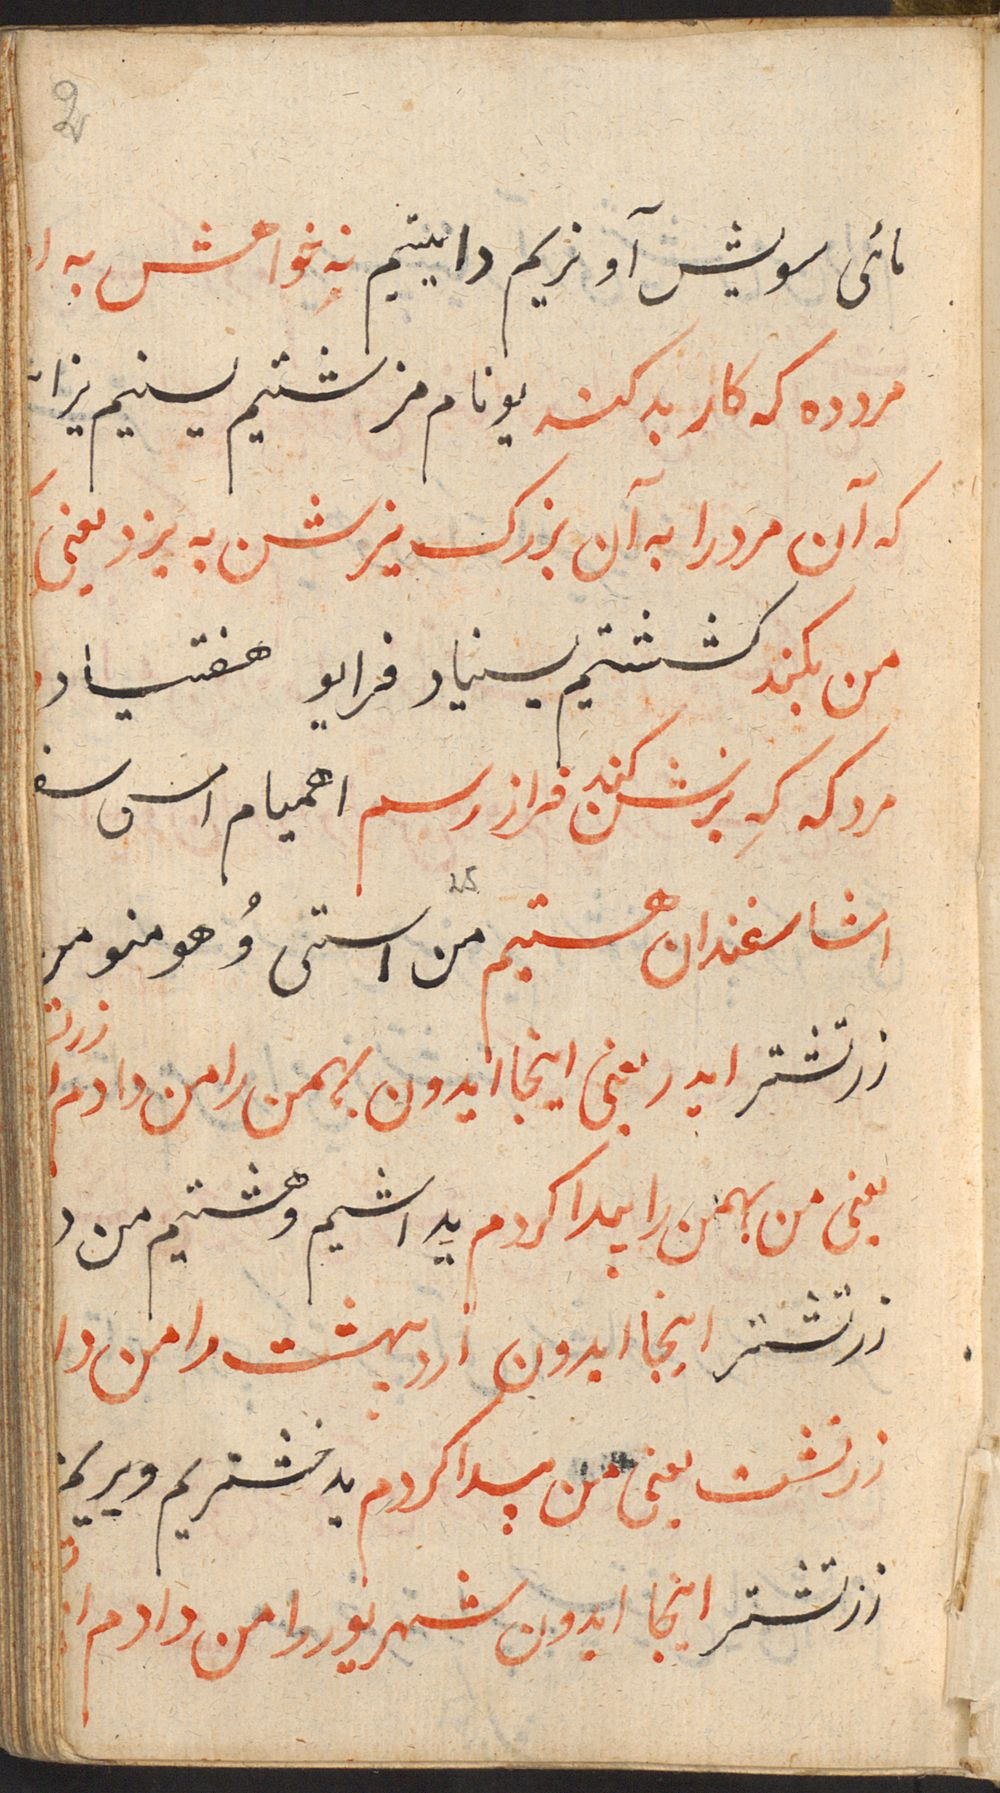 2
مائی سویش آو نریم دابیتیم نه خواهش به
مرد ده که کار بد کند یونام مزشتیم یسنیم
که آن مرد را به آن بزرک یزشن به یزد یعنی
من بکند کششتیم یسنیاد فرایو هفتیاد
مرد که که یزشن کند فراز رسم اهمیام اس
25
امشاسفندان هستیم من استی وُهومنو
زرتشتر ایدر یعنی اینجا ایدون بهمن را من دادم
یعنی من بهمن را پیدا کردم ید اشیم وهشتیم من
زرتشتر اینجا ایدون اردیبهشت را من
زرتشت یعنی من پیدا کردم ید خشتریم ویریم
زرتشتر اینجا ایدون شهریور را من دادم